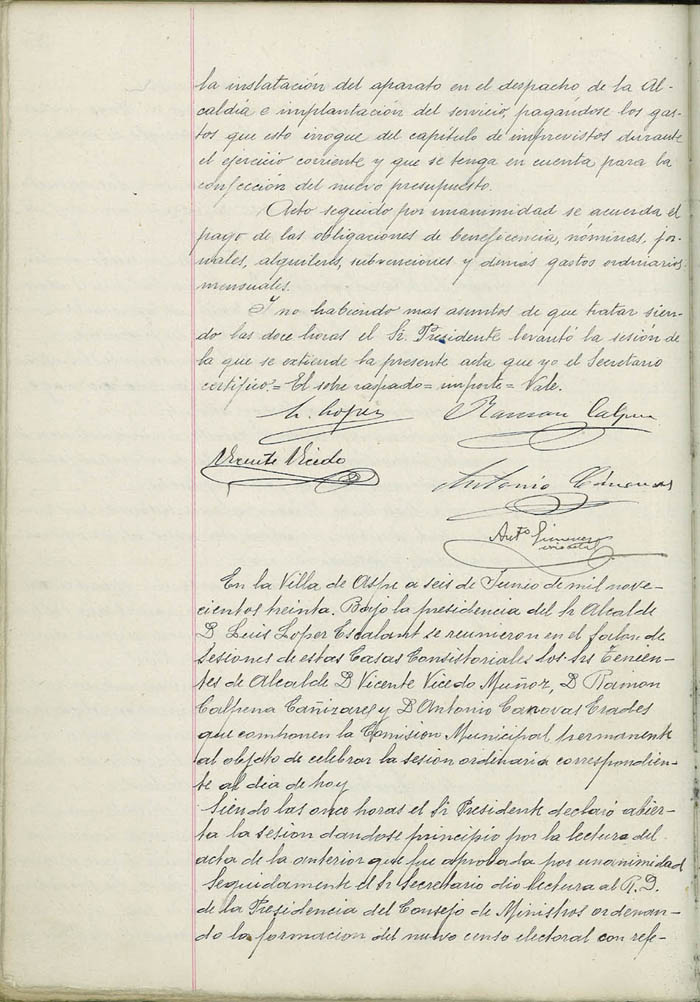 la instalación del aparato en el despacho de la Al-
caldía e implantación del servicio, pagándose los gas-
tos que esto irrogue del capítulo de imprevistos durante
el ejercicio corriente y que se tenga en cuenta para la
confección del nuevo presupuesto.
Acto seguido por unanimidad se acuerda el
pago de las obligaciones de beneficencia, nóminas, jor-
nales, alquileres, subvenciones y demas gastos ordinarios
mensuales.
Y no habiendo mas asuntos de que tratar sien-
do las doce horas el Sr. Presidente levantó la sesión de
la que se extiende la presente acta que yo el Secretario
certifico.= El sobre raspado= importe= Vale.
L. Lopez Ramon Calpena
Vicente Vicedo
Antonio Cánovas
Anto. Gimenez
En la Villa de Aspe a seis de Junio de mil nove-
cientos treinta. Bajo la presidencia del Sr Alcalde
D Luis Lopez Escalant se reunieron en el salon de
sesiones de estas Casas Consistoriales los Srs Tenien-
tes de Alcalde D Vicente Vicedo Muñoz, D Ramon
Calpena Cañizares y D Antonio Canovas Erades
que componen la Comision Municipal Permanente
al objeto de celebrar la sesion ordinaria correspondien-
te al dia de hoy
Siendo las once horas el Sr Presidente declaró abier-
ta la sesion dandose principio por la lectura del
acta de la anterior que fue aprobada por unanimidad
Seguidamente el Sr Secretario dio lectura al R. D.
de la Presidencia del Consejo de Ministros ordenan-
do la formacion del nuevo censo electoral con refe-